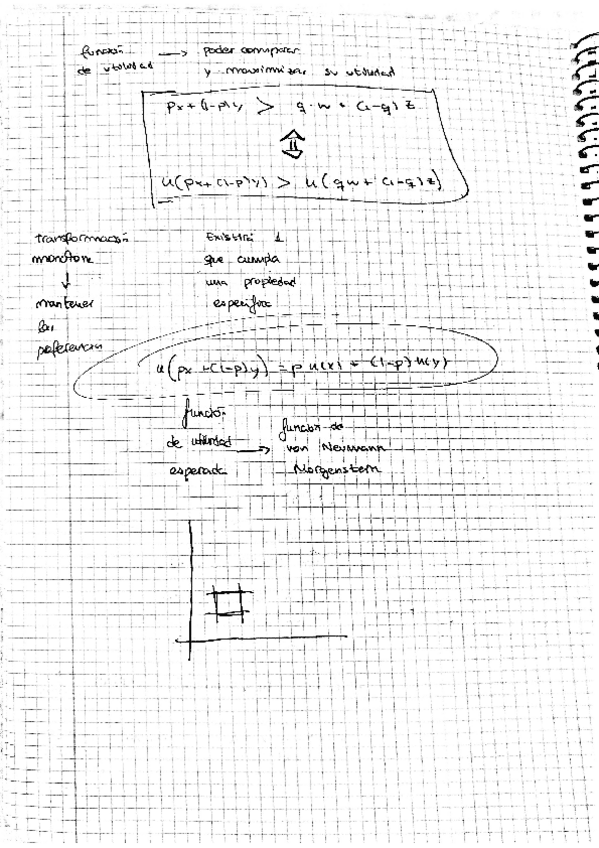 función → poder comparar
de utilidad y maximizar su utilidad
px + (1-p)y > q·w + (1-q)z
⇕
u(px + (1-p)y) > u(qw + (1-q)z)
transformación
monótona
↓
mantener
las
preferencias
Existirá 1
que cumpla
una propiedad
específica
u(px + (1-p)y) = p u(x) + (1-p) u(y)
función
de utilidad →
esperada
función de
von Neumann
Morgenstern